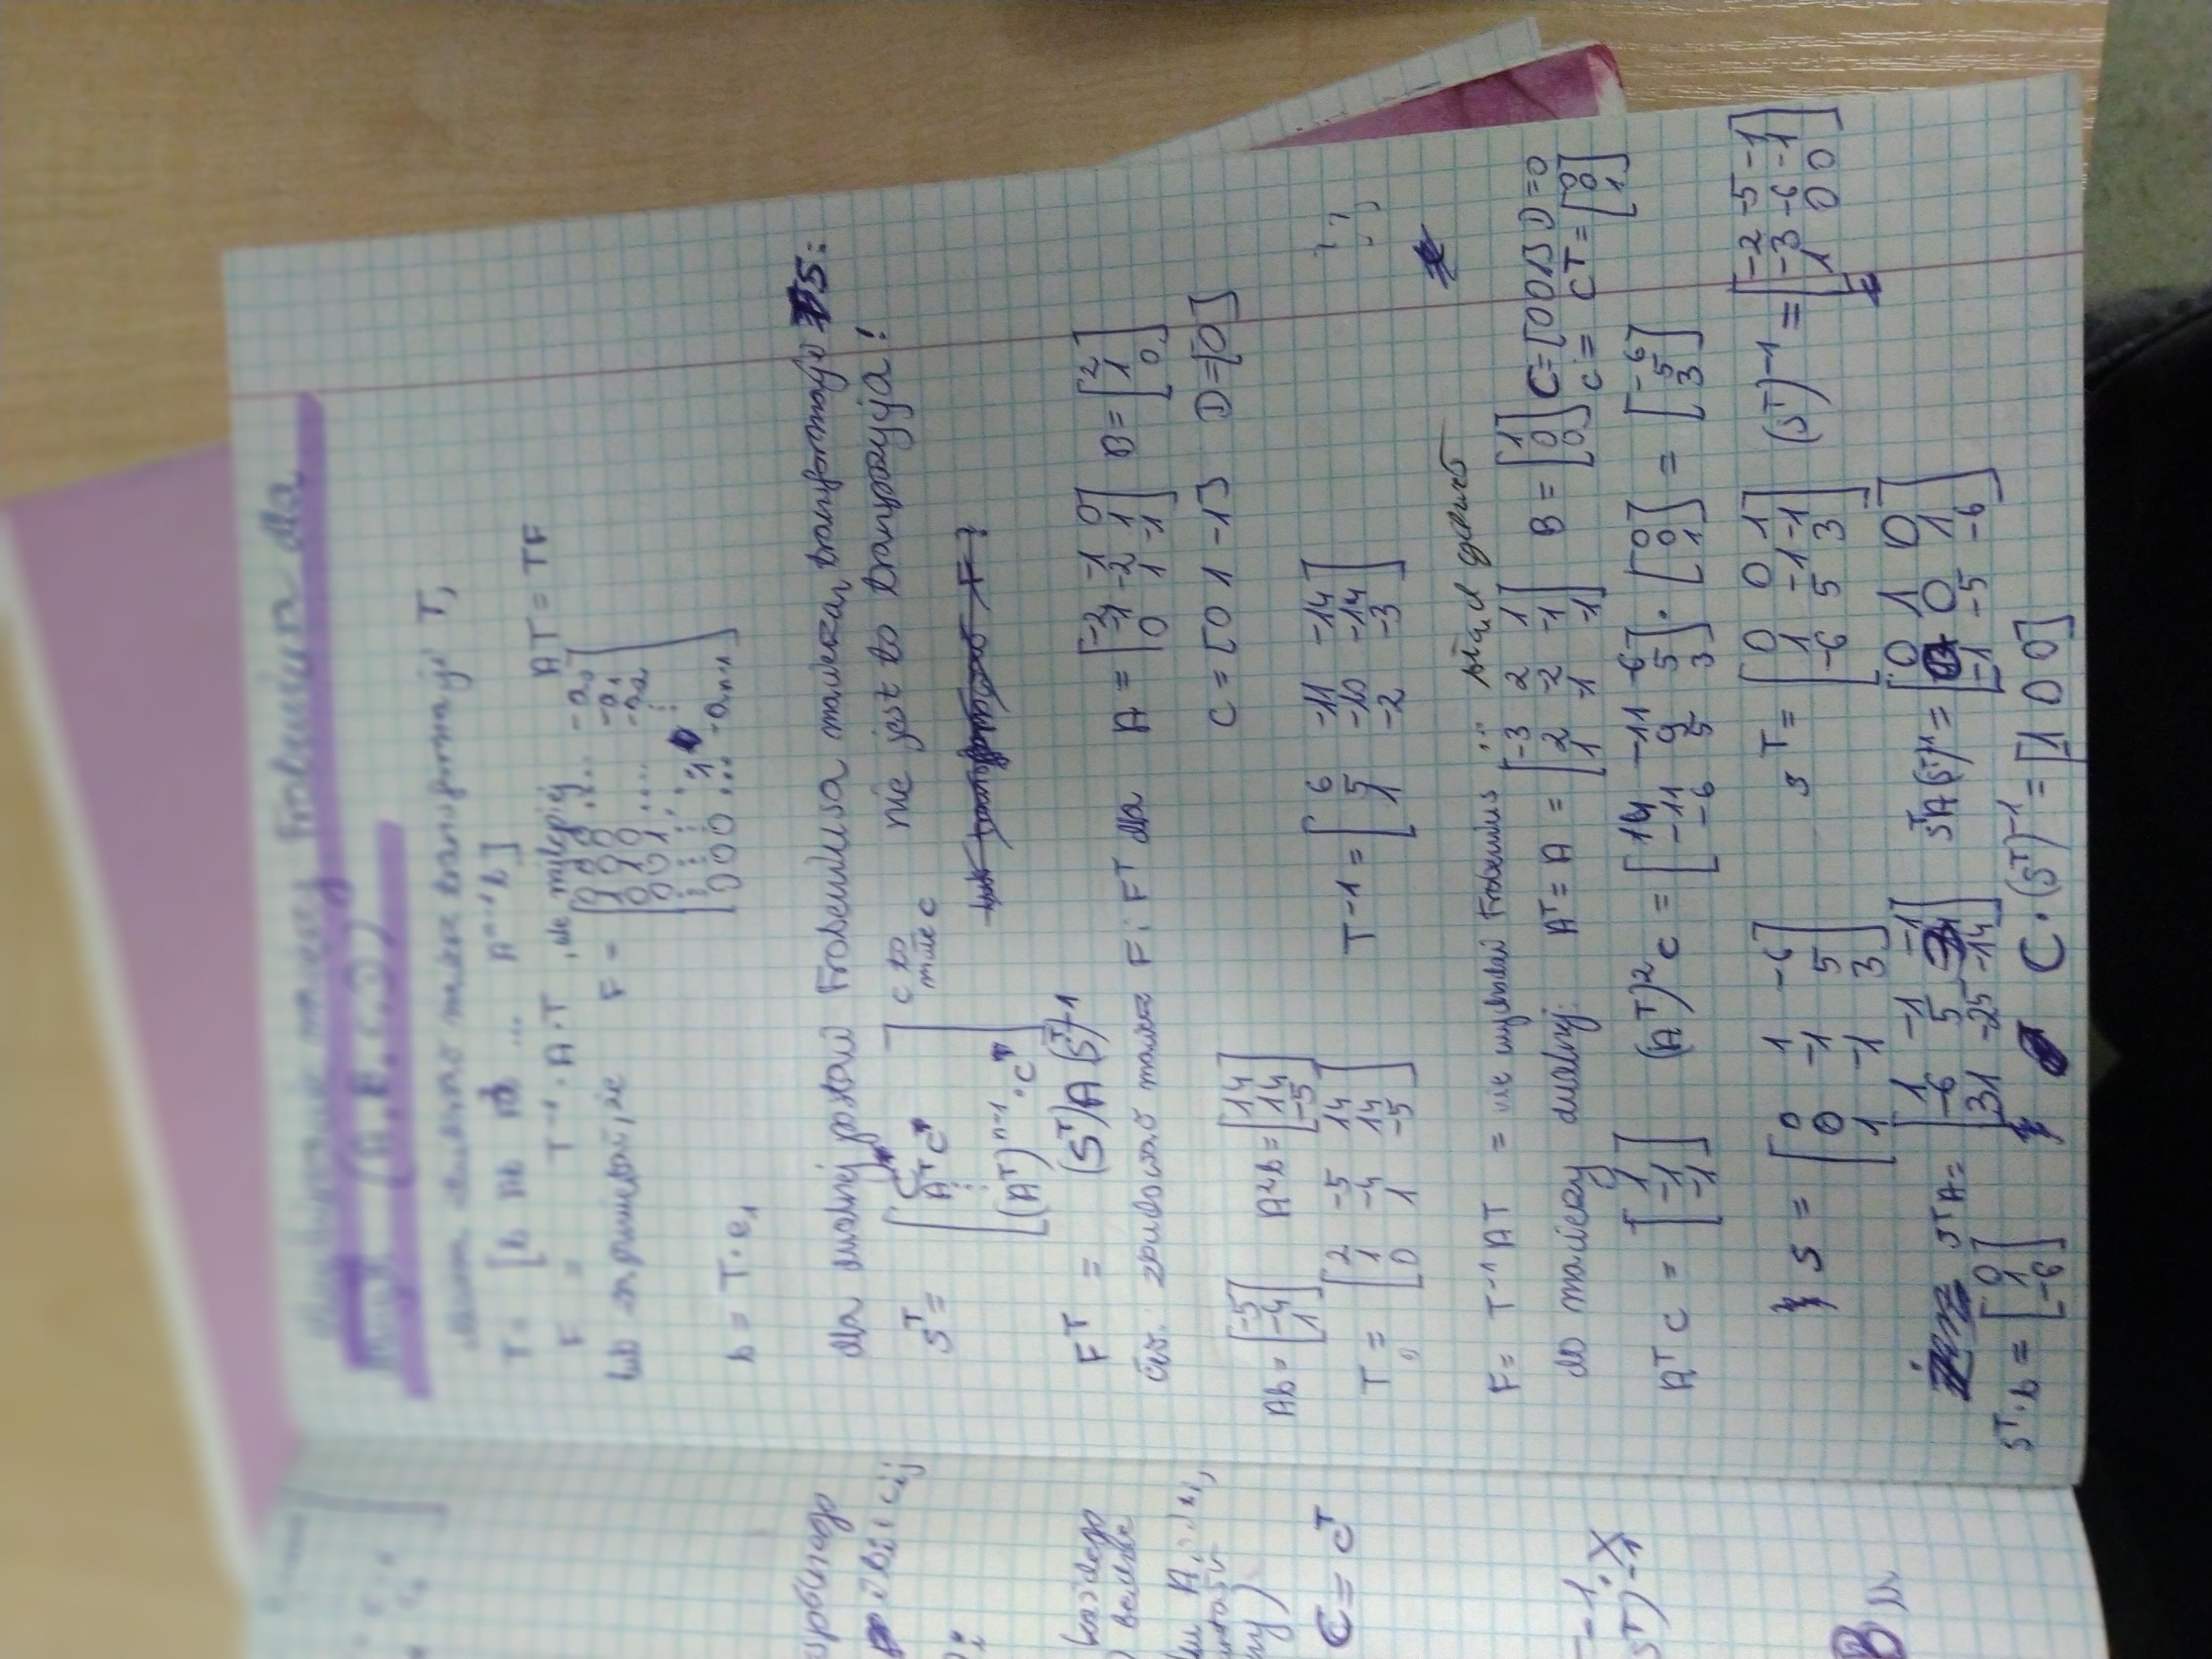 macierzy Frobeniusa dla
(A, B, C, D)
transformacji T,
T = [b Ab A²b ... Aⁿ⁻¹b]
F = T⁻¹·A·T , ale najlepiej AT = TF
lub zapamiętać, że F = [0 0 0 .... -a₀
1 0 0 -a₁
0 1 0 .... -a₂
0 0 1 . ⋮
⋮ ⋮ ⋮ ⋱ 1
0 0 0 ... -aₙ₋₁]
b = T·e₁
dla dualnej postaci Frobeniusa macierzą transformacji S:
Sᵀ = [c
Aᵀc
⋮
(Aᵀ)ⁿ⁻¹·c] c to małe c nie jest to transpozycja!
Fᵀ = (Sᵀ)A(Sᵀ)⁻¹
ćw. zbudować macierz F i Fᵀ dla A = [-2 -1 0
-1 -2 1
0 1 -1] B = [2
1
0]
C = [0 1 -1] D = [0]
Ab = [-5
-4
1] A²b = [14
14
-5]
T = [2 -5 14
1 -4 14
0 1 -5] T⁻¹ = [6 -11 -14
5 -10 -14
1 -2 -3]
F = T⁻¹AT = nie wychodzi Frobenius ... błąd
do macierzy dualnej: Aᵀ = A = [-3 2 1
2 -2 -1
1 -1 -1] B = [1
0
0] C = [0 0 1] D = 0
c = Cᵀ = [0
0
1]
Aᵀc = [1
-1
-1] (Aᵀ)²c = [14 -11 -6
-11 9 5
-6 5 3] · [0
0
1] = [-6
5
3]
S = [0 1 -6
0 -1 5
1 -1 3] Sᵀ = [0 0 1
1 -1 -1
-6 5 3] (Sᵀ)⁻¹ = [-2 -5 -1
-3 -6 -1
1 0 0]
SᵀA = [1 -1 -1
-6 5
31 -25 -14] SᵀA(Sᵀ)⁻¹ = [0 1 0
0 1
-1 -5 -6]
Sᵀ·b = [0
1
-6] C·(Sᵀ)⁻¹ = [1 0 0]
każdego
C = cᵀ
-1·X
Sᵀ)⁻¹
B u